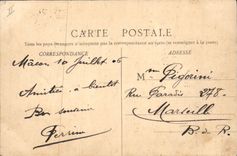 CARTE POSTALE
Tous les pays étrangers n'acceptent pas la correspondance au recto (se renseigner à la poste)
CORRESPONDANCE
ADRESSE
Macon 10 juillet 06
Amitiés à bientôt
Bon souvenir
Perrin
M
Rue Paradis 278
Marseille
B. d. R.